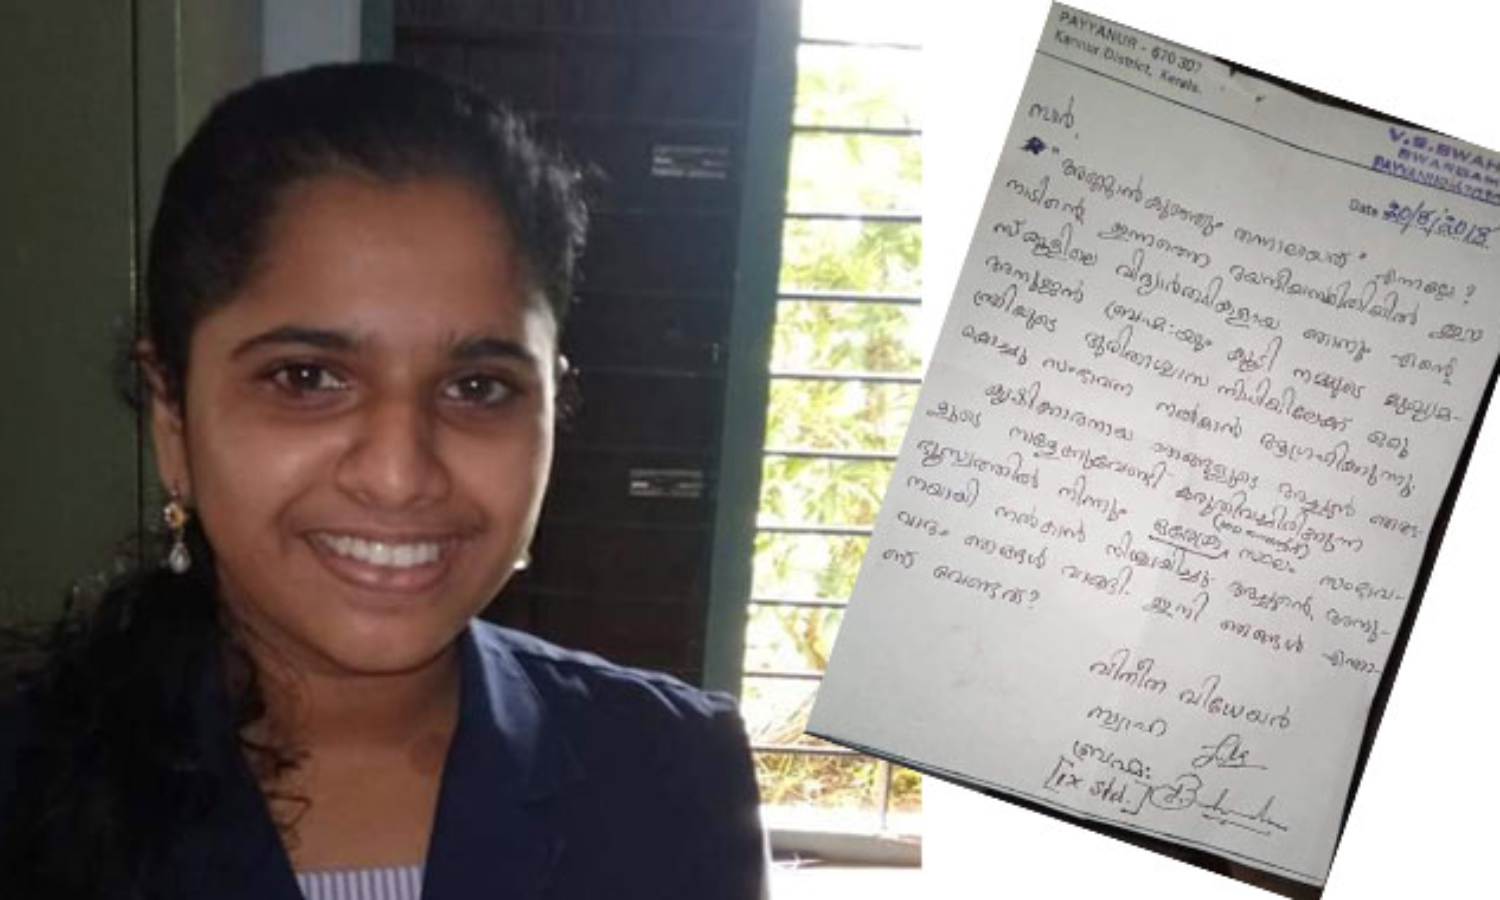 PAYYANUR - 670 307
Kannur District, Kerala.
V.S.SWAH
SWARGAM
PAYYANUR-670307
Date 20/8/2018
സാർ,
"അണ്ണാൻകുഞ്ഞും തന്നാലായത്" എന്നല്ലേ?
നാടിന്റെ ഇന്നത്തെ ദയനീയസ്ഥിതിയിൽ ഈ
സ്കൂളിലെ വിദ്യാർത്ഥികളായ ഞാനും എന്റെ
അനുജൻ ബ്രഹ്മ:യും കൂടി നമ്മുടെ മുഖ്യമ-
ന്ത്രിയുടെ ദുരിതാശ്വാസ നിധിയിലേക്ക് ഒരു
കൊച്ചു സംഭാവന നൽകാൻ ആഗ്രഹിക്കുന്നു.
കൃഷിക്കാരനായ ഞങ്ങളുടെ അച്ഛൻ ഞങ്ങ-
ളുടെ നാളേക്കുവേണ്ടി കരുതിവച്ചിരിക്കുന്ന
ഭൂസ്വത്തിൽ നിന്നും ഒരേക്കർ സ്ഥലം സംഭാവ-
നയായി നൽകാൻ നിശ്ചയിച്ചു. അച്ഛന്റെ അനു-
വാദം ഞങ്ങൾ വാങ്ങി. ഇനി ഞങ്ങൾ എന്താ-
ണ് വേണ്ടത്?
വിനീത വിധേയൻ
സ്വാഹ
ബ്രഹ്മ:
[IX std.]